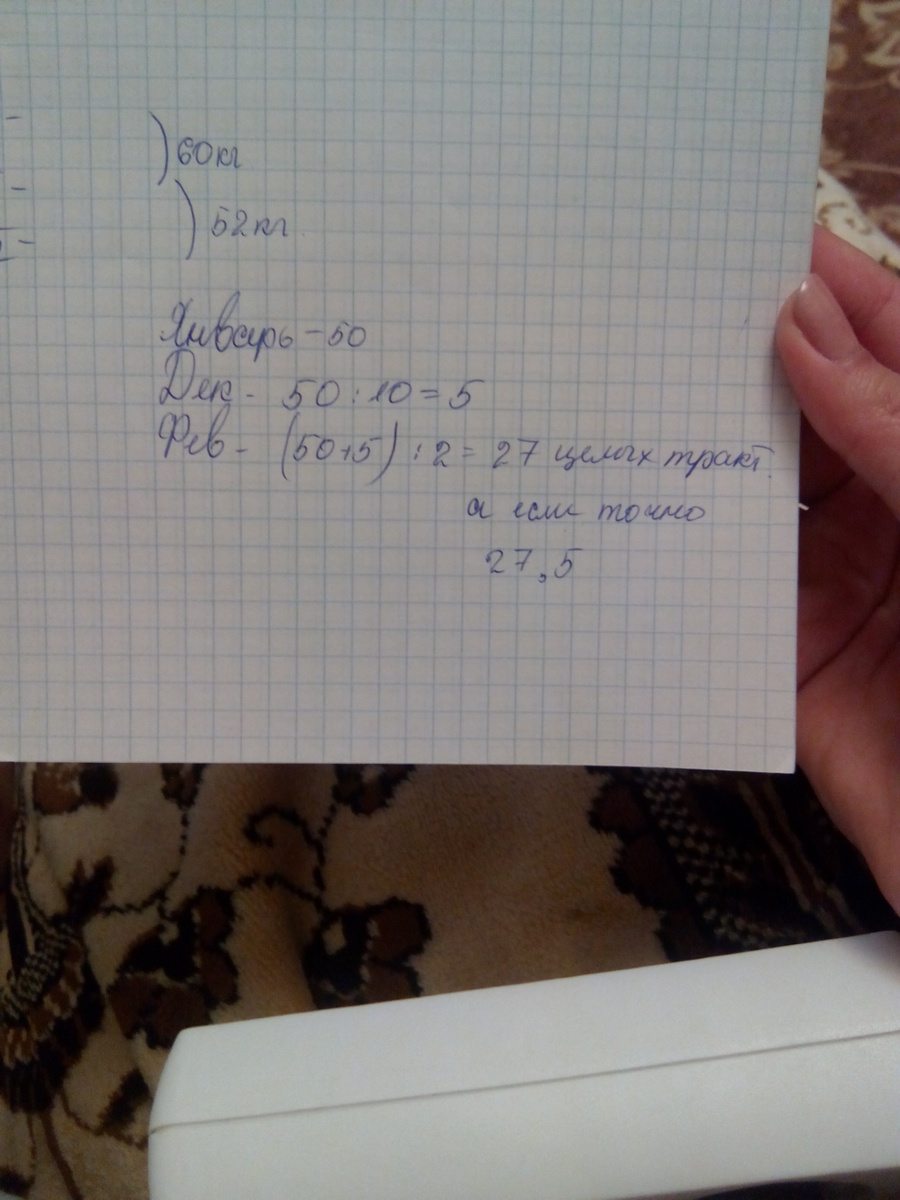 -
)60кг
-
)52кг.
-
Январь - 50
Дек - 50 : 10 = 5
Фев - (50+5) : 2 = 27 целых тракт.
а если точно
27,5